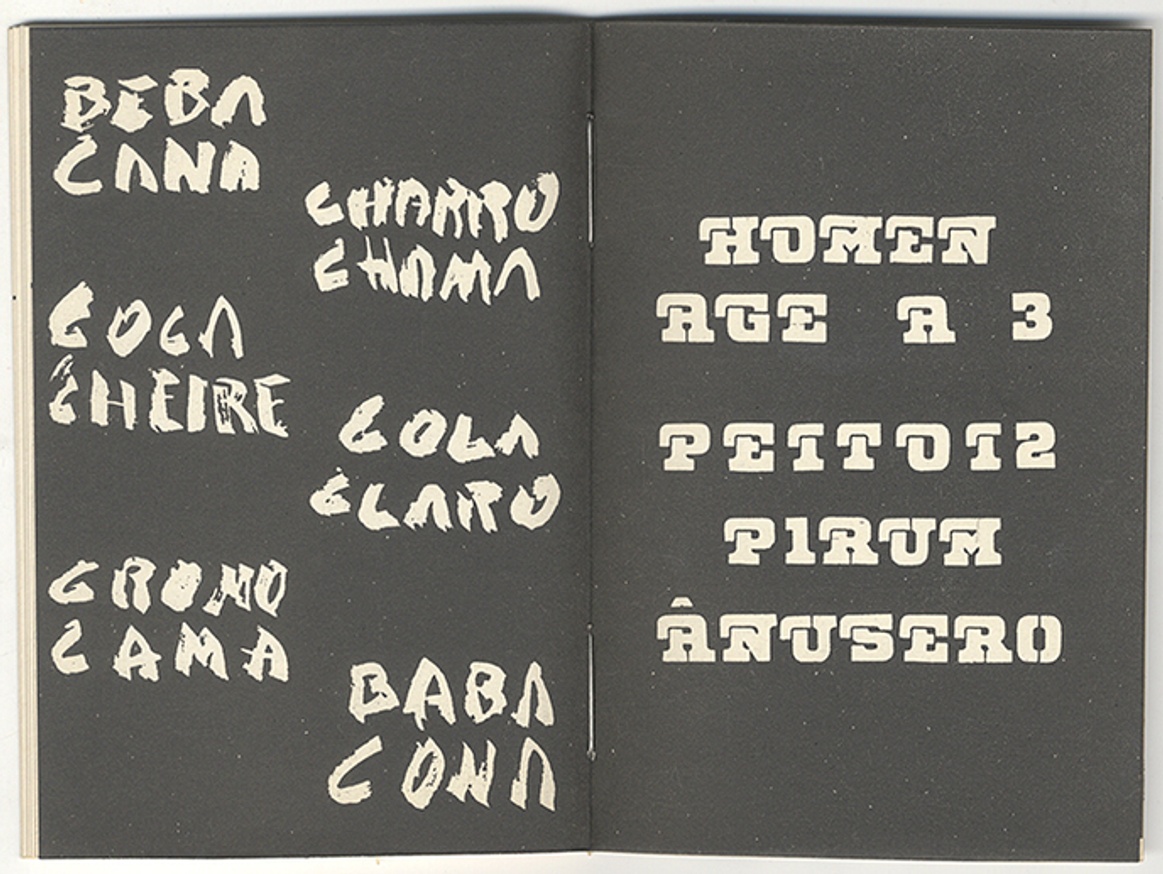 BEBA
CANA
CHARRO
CHAMA
COCA
CHEIRE
COLA
CLARO
CROMO
CAMA
BABA
CONA
HOMEN
AGE A 3
PEITOI2
P1RUM
ÂNUSER0